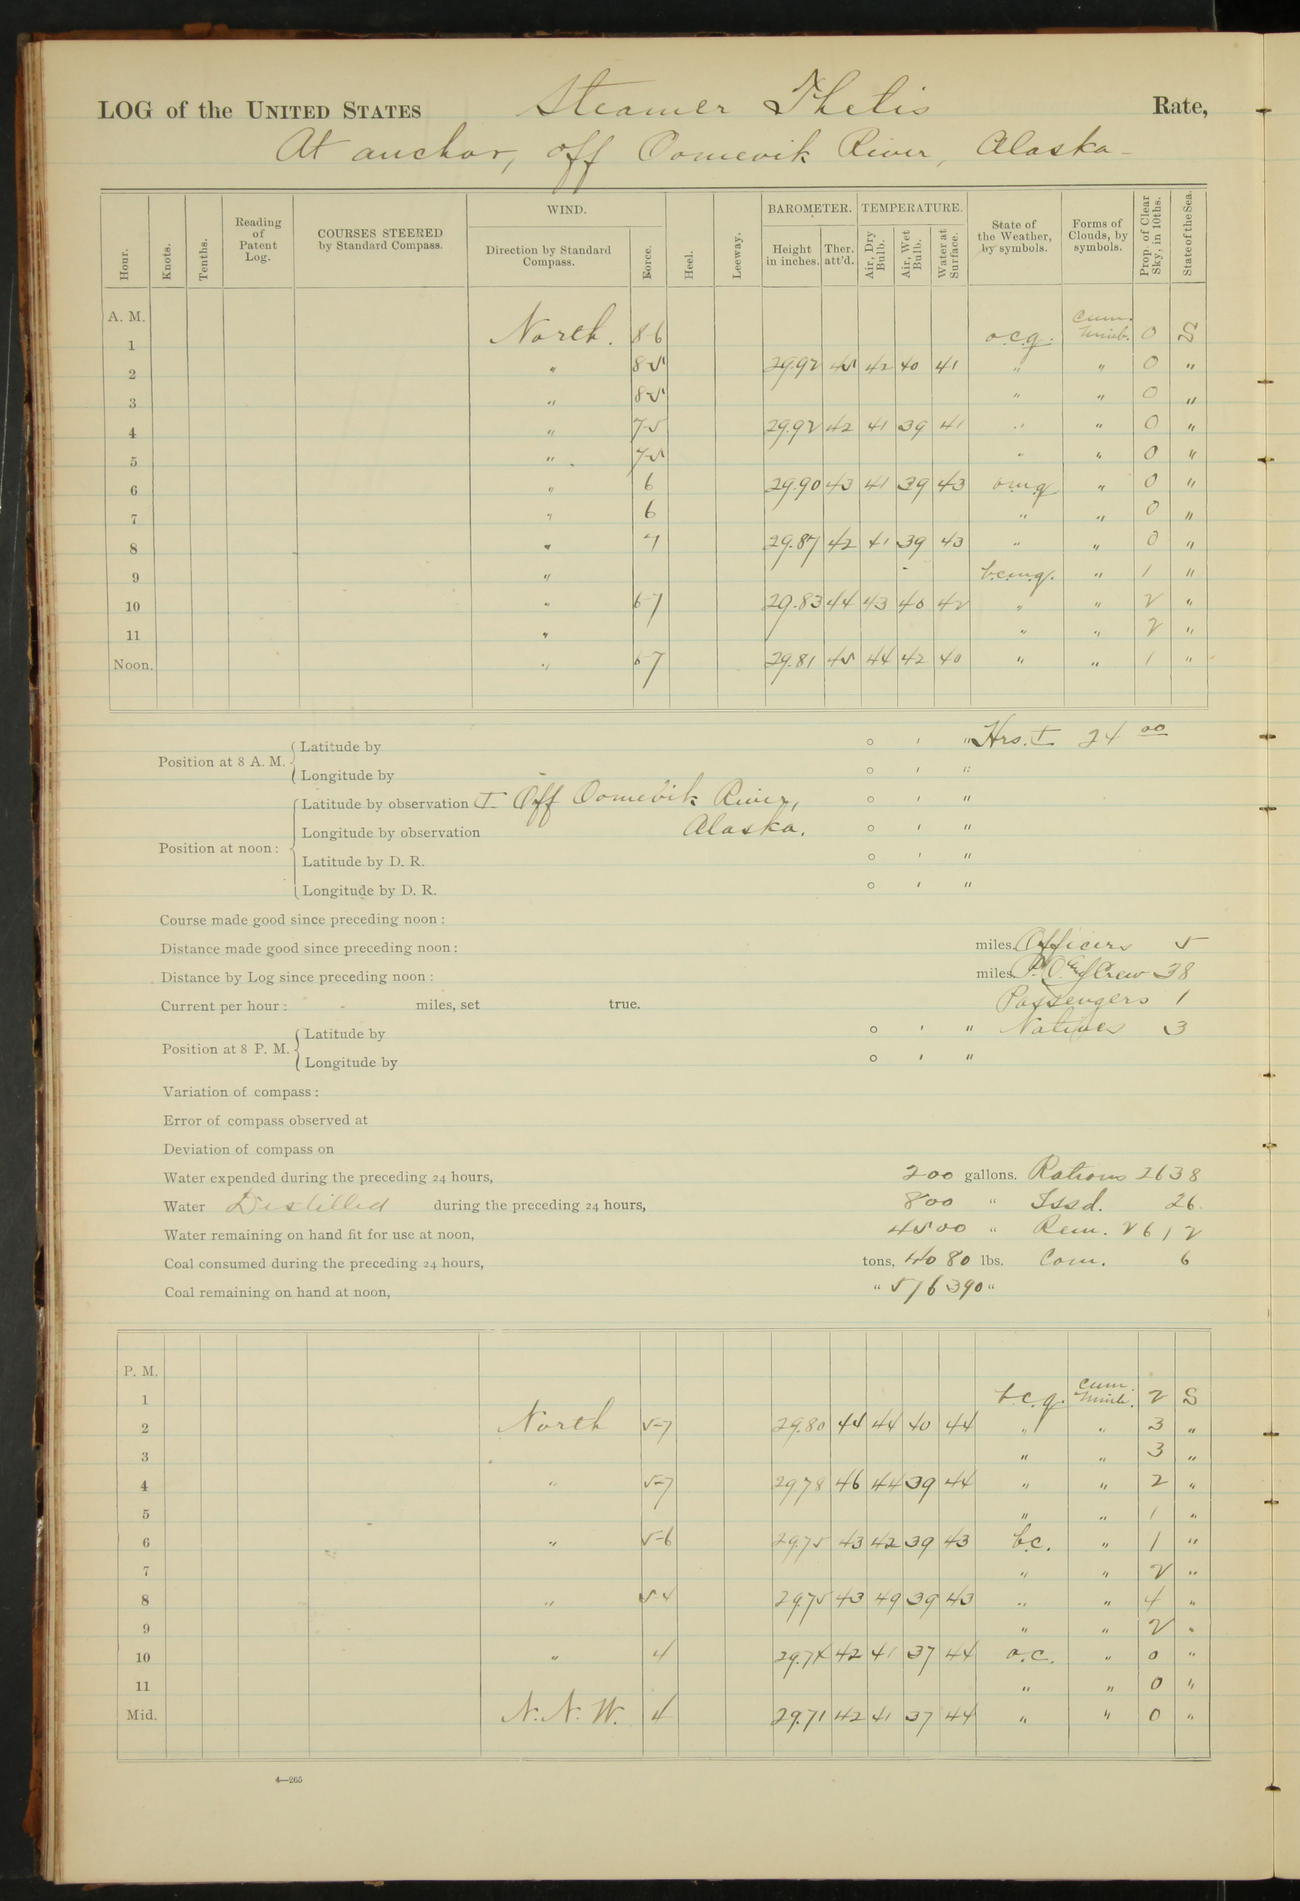 LOG of the UNITED STATES Steamer Thetis Rate,
At anchor, off Oomevik River, Alaska
Hour. Knots. Tenths. Reading of Patent Log. COURSES STEERED by Standard Compass. WIND. Direction by Standard Compass. Force. Heel. Leeway. BAROMETER. Height in inches. Ther. att'd. TEMPERATURE. Air, Dry Bulb. Air, Wet Bulb. Water at Surface. State of the Weather, by symbols. Forms of Clouds, by symbols. Prop. of Clear Sky, in 10ths. State of the Sea.
A. M.
1 North. 8-6 o.c.q. Cum. Nimb. 0 S
2 " 8-5 29.92 45 42 40 41 " " 0 "
3 " 8-5 " " 0 "
4 " 7-5 29.92 42 41 39 41 " " 0 "
5 " 7-5 " " 0 "
6 " 6 29.90 43 41 39 43 o.m.q. " 0 "
7 " 6 " " 0 "
8 " 7 29.87 42 41 39 43 " " 0 "
9 " b.c.m.q. " 1 "
10 " 6-7 29.83 44 43 40 42 " " 2 "
11 " " " 2 "
Noon. " 6-7 29.81 45 44 42 40 " " 1 "
Position at 8 A. M. Latitude by ° ' " Hrs. 24 00
Longitude by ° ' "
Position at noon: Latitude by observation Off Oomevik River, ° ' "
Longitude by observation Alaska. ° ' "
Latitude by D. R. ° ' "
Longitude by D. R. ° ' "
Course made good since preceding noon:
Distance made good since preceding noon: miles. Officers 5
Distance by Log since preceding noon: miles. P.O. & Crew 38
Current per hour: miles, set true. Passengers 1
Position at 8 P. M. Latitude by ° ' " Natives 3
Longitude by ° ' "
Variation of compass:
Error of compass observed at
Deviation of compass on
Water expended during the preceding 24 hours, 200 gallons. Rations 2638
Water Distilled during the preceding 24 hours, 800 " Issd. 26
Water remaining on hand fit for use at noon, 4500 " Rem. 2612
Coal consumed during the preceding 24 hours, tons, 4080 lbs. Com. 6
Coal remaining on hand at noon, " 516390 "
P. M.
1 b.c.q. Cum. Nimb. 2 S
2 North 5-7 29.80 44 44 40 44 " " 3 "
3 " " 3 "
4 " 5-7 29.78 46 44 39 44 " " 2 "
5 " " 1 "
6 " 5-6 29.75 43 42 39 43 b.c. " 1 "
7 " " 2 "
8 " 5-4 29.75 43 49 39 43 " " 4 "
9 " " 2 "
10 " 4 29.74 42 41 37 44 o.c. " 0 "
11 " " 0 "
Mid. N.N.W. 4 29.71 42 41 37 44 " " 0 "
4—265